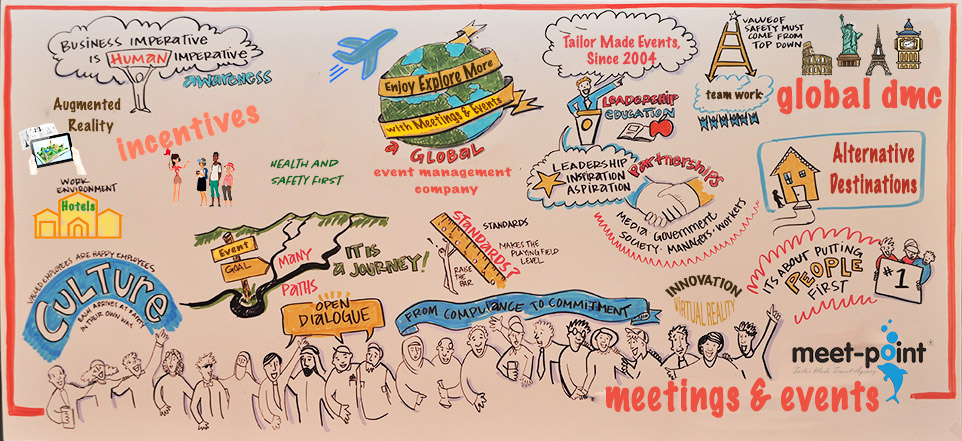 BUSINESS IMPERATIVE
IS HUMAN IMPERATIVE
AWARENESS
Augmented
Reality
incentives
WORK
ENVIRONMENT
Hotels
HEALTH AND
SAFETY FIRST
Enjoy Explore More
with Meetings & Events
a GLOBAL
event management
company
Tailor Made Events,
Since 2004
LEADERSHIP
EDUCATION
LEADERSHIP
INSPIRATION
ASPIRATION
Partnerships
MEDIA Government
SOCIETY MANAGERS WORKERS
VALUE OF
SAFETY MUST
COME FROM
TOP DOWN
team work
global dmc
Alternative
Destinations
VALUED EMPLOYEES ARE HAPPY EMPLOYEES
CULTURE
EACH ARRIVES AT SAFETY
IN THEIR OWN WAY
Event
GOAL
MANY
PATHS
IT IS
A JOURNEY!
STANDARDS
STANDARDS
MAKES THE
PLAYING FIELD
LEVEL
RAISE
THE
BAR
OPEN
DIALOGUE
FROM COMPLIANCE TO COMMITMENT
INNOVATION
VIRTUAL REALITY
IT'S ABOUT PUTTING
PEOPLE
FIRST
#1
meet-point
Tailor Made Travel Agency
meetings & events